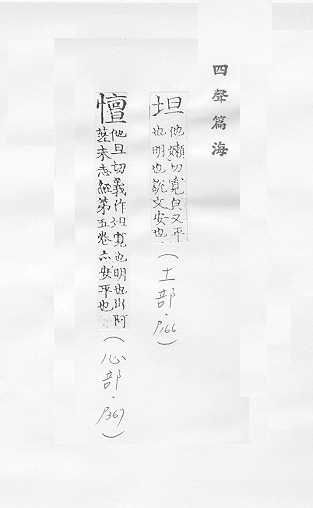 四聲篇海
坦 他嬾切寬皃又平
也明也說文安也
(土部·P166)
憻 他旦切義作坦寬也明也出阿
毗達磨經第五卷亦安平也
(心部·P367)